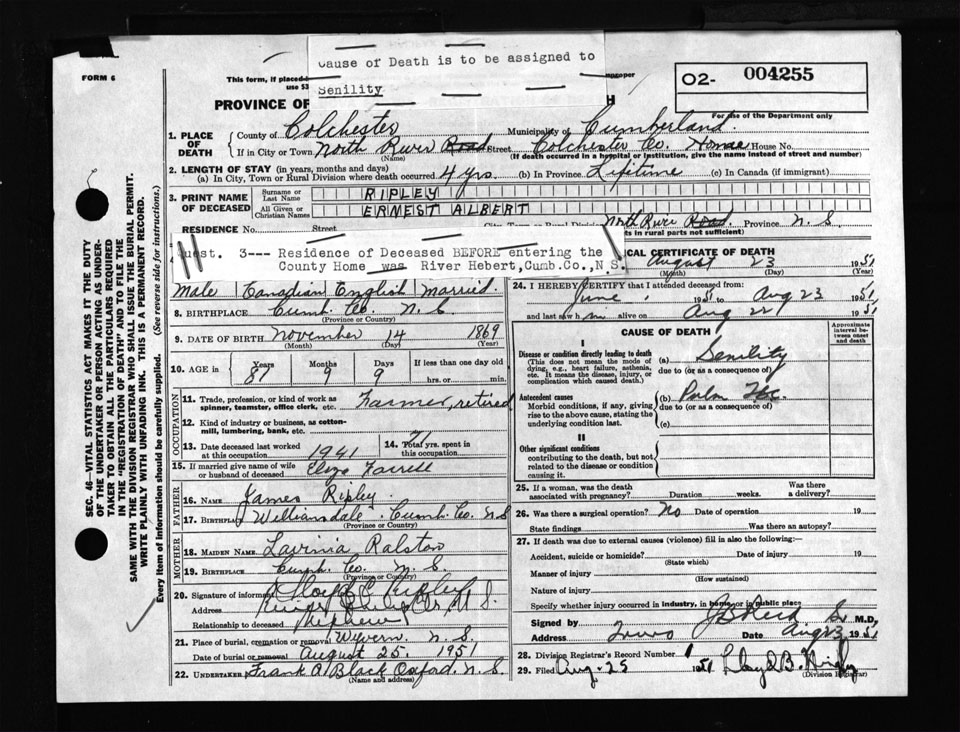 Cause of Death is to be assigned to
Senility
FORM 6
This form, if placed
use 53
improper
O2- 004255
For use of the Department only
PROVINCE OF H
1. PLACE OF DEATH
County of Colchester Municipality of Cumberland
If in City or Town North River Road Street Colchester Co. Home House No.
(Name) (If death occurred in a hospital or institution, give the name instead of street and number)
2. LENGTH OF STAY (in years, months and days)
(a) In City, Town or Rural Division where death occurred 4 yrs. (b) In Province Lifetime (c) In Canada (if immigrant)
3. PRINT NAME OF DECEASED
Surname or Last Name RIPLEY
All Given or Christian Names ERNEST ALBERT
RESIDENCE No. Street North River Road. Province N.S
in rural parts not sufficient)
Quest. 3--- Residence of Deceased BEFORE entering the
County Home was River Hebert, Cumb.Co., N.S.
Male Canadian English Married.
8. BIRTHPLACE Cumb. Co. N.S.
(Province or Country)
9. DATE OF BIRTH November 14 1869
(Month) (Day) (Year)
10. AGE in Years Months Days If less than one day old
81 9 9 hrs. or min.
OCCUPATION
11. Trade, profession, or kind of work as
spinner, teamster, office clerk, etc. Farmer, retired
12. Kind of industry or business, as cotton-
mill, lumbering, bank, etc.
13. Date deceased last worked
at this occupation 1941
14. Total yrs. spent in
this occupation
15. If married give name of wife
or husband of deceased Farrell
FATHER
16. Name James Ripley
17. Birthplace Williamsdale. Cumb. Co. N.S
(Province or Country)
MOTHER
18. MAIDEN NAME Lavinia Ralston
19. BIRTHPLACE Cumb. Co. N.S.
(Province or Country)
20. Signature of informant Ripley
Address River N.S.
Relationship to deceased Nephew
21. Place of burial, cremation or removal Wyvern. N.S.
Date of burial or removal August 25. 1951
22. UNDERTAKER Frank A. Black Oxford. N.S.
(Name and address)
MEDICAL CERTIFICATE OF DEATH
August 23 1951
(Month) (Day) (Year)
24. I HEREBY CERTIFY that I attended deceased from:
June 1951 to Aug 23 1951
and last saw him alive on Aug 22 1951
CAUSE OF DEATH
Approximate interval between onset and death
I
Disease or condition directly leading to death
(This does not mean the mode of
dying, e.g., heart failure, asthenia,
etc. It means the disease, injury, or
complication which caused death.)
(a) Senility
due to (or as a consequence of)
Antecedent causes
Morbid conditions, if any, giving
rise to the above cause, stating the
underlying condition last.
(b) Pulm Tbc.
due to (or as a consequence of)
(c)
II
Other significant conditions
contributing to the death, but not
related to the disease or condition
causing it.
25. If a woman, was the death
associated with pregnancy? Duration weeks. Was there
a delivery?
26. Was there a surgical operation? No Date of operation 19
State findings Was there an autopsy?
27. If death was due to external causes (violence) fill in also the following:—
Accident, suicide or homicide? Date of injury 19
(State which)
Manner of injury
(How sustained)
Nature of injury
Specify whether injury occurred in industry, in home or in public place
Signed by J B Reid Sr M.D.
Address Truro Date Aug 23 1951
28. Division Registrar's Record Number
29. Filed Aug. 25 1951 Lloyd B.
(Division Registrar)
SEC. 46—VITAL STATISTICS ACT MAKES IT THE DUTY
OF THE UNDERTAKER OR PERSON ACTING AS UNDER-
TAKER TO OBTAIN ALL THE PARTICULARS REQUIRED
IN THE "REGISTRATION OF DEATH" AND TO FILE THE
SAME WITH THE DIVISION REGISTRAR WHO SHALL ISSUE THE BURIAL PERMIT.
WRITE PLAINLY WITH UNFADING INK. THIS IS A PERMANENT RECORD.
Every item of information should be carefully supplied. (See reverse side for instructions.)